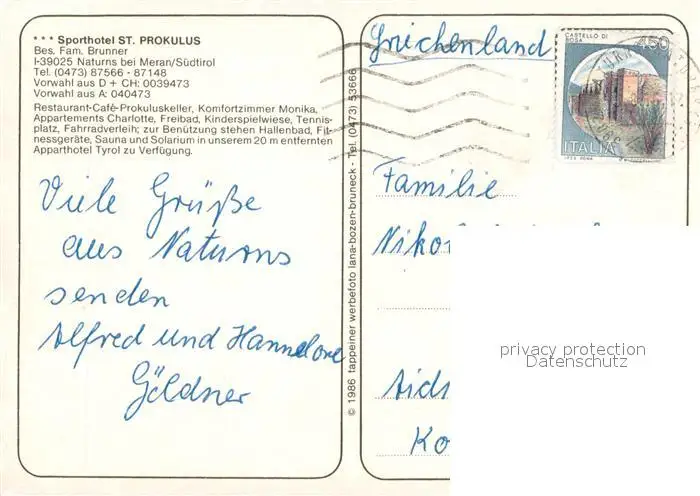 *** Sporthotel ST. PROKULUS
Bes. Fam. Brunner
I-39025 Naturns bei Meran/Südtirol
Tel. (0473) 87566 - 87148
Vorwahl aus D + CH: 0039473
Vorwahl aus A: 040473
Restaurant-Café-Prokuluskeller, Komfortzimmer Monika,
Appartements Charlotte, Freibad, Kinderspielwiese, Tennis-
platz, Fahrradverleih; zur Benützung stehen Hallenbad, Fit-
nessgeräte, Sauna und Solarium in unserem 20 m entfernten
Apparthotel Tyrol zu Verfügung.
Viele Grüße
aus Naturns
senden
Alfred und Hannelore
Göldner
© 1986 tappeiner werbefoto lana-bozen-bruneck - Tel. (0473) 53666
Griechenland
CASTELLO DI
BOSA
450
ITALIA
Familie
Niko
Aids
Ko
privacy protection
Datenschutz